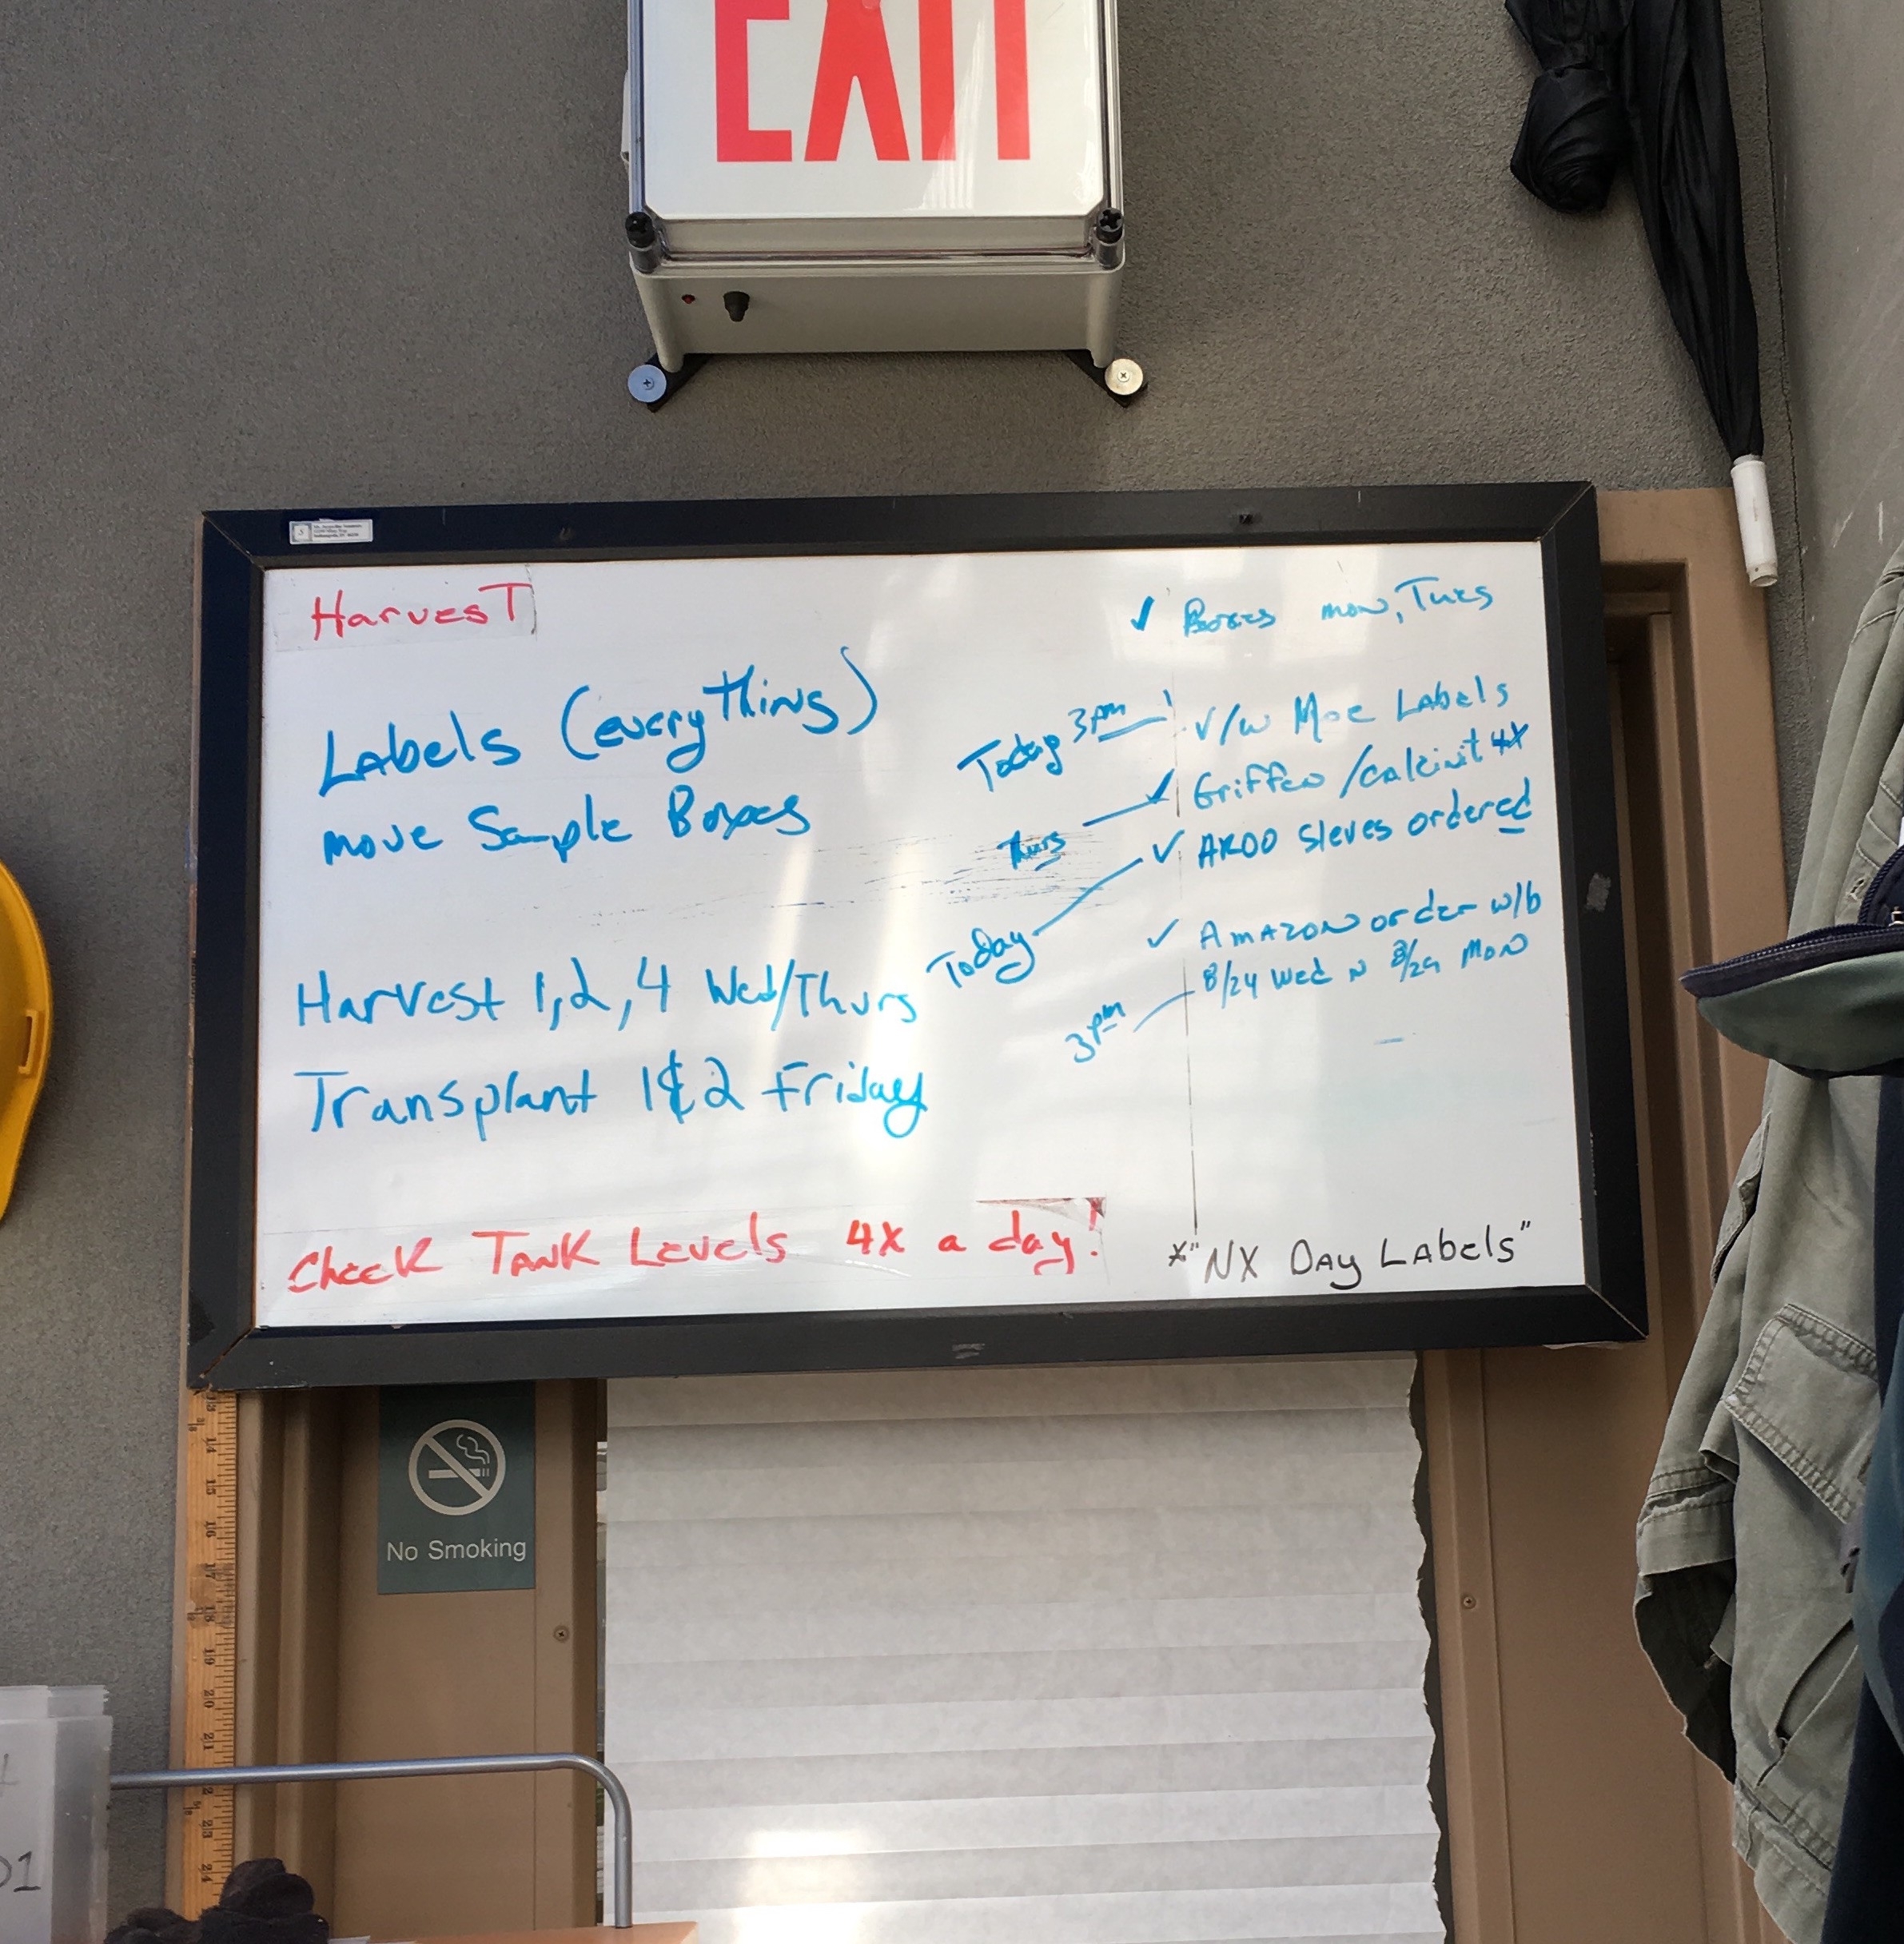 EXIT
HarvesT
Labels (everything)
move Sample Boxes
Harvest 1,2,4 Wed/Thurs
Transplant 1&2 Friday
Check Tank Levels 4x a day!
✓ Boxes mon, Tues
Today 3pm
V/w Moe Labels
✓ Griffen /Calcinit 4x
Thurs
✓ AROO Sleves ordered
Today
✓ Amazon order w/b
8/24 Wed N 8/29 Mon
3pm
*"NX Day Labels"
No Smoking
13
14
15
16
17
18
19
20
21
23
24
01